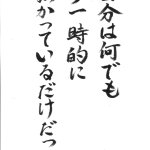 分は何でも
一時的に
かっているだけだっ